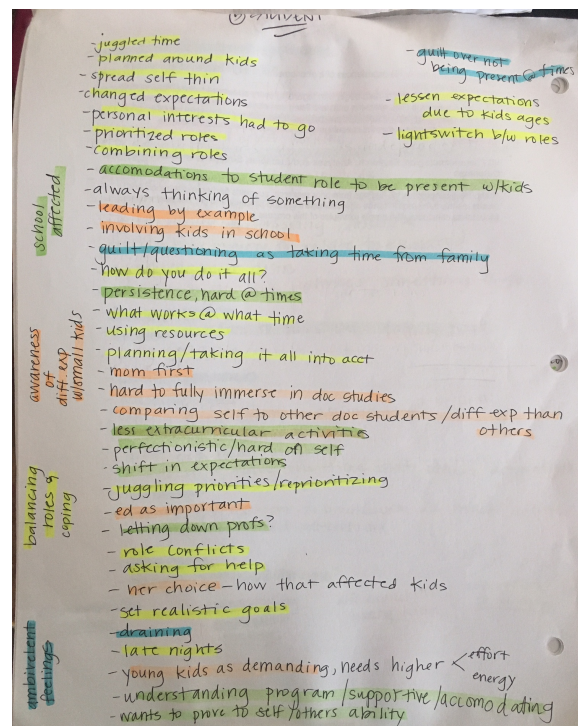 - juggled time
- planned around kids
- spread self thin
- changed expectations
- personal interests had to go
- prioritized roles
- combining roles
- guilt over not
being present @ times
- lessen expectations
due to kids ages
- lightswitch b/w roles
- accomodations to student role to be present w/kids
- always thinking of something
- leading by example
- involving kids in school
- guilt/questioning as taking time from family
- how do you do it all?
- persistence, hard @ times
- what works @ what time
- using resources
- planning/taking it all into acct
- mom first
- hard to fully immerse in doc studies
- comparing self to other doc students /diff exp than
others
- less extracurricular activities
- perfectionistic/hard on self
- shift in expectations
- juggling priorities/reprioritizing
- ed as important
- letting down profs?
- role conflicts
- asking for help
- her choice - how that affected kids
- set realistic goals
- draining
- late nights
- young kids as demanding, needs higher < effort
energy
- understanding program /supportive/accomodating
- wants to prove to self/others ability
school
affected
awareness
of
diff exp
w/small kids
balancing
roles &
coping
ambivelent
feelings